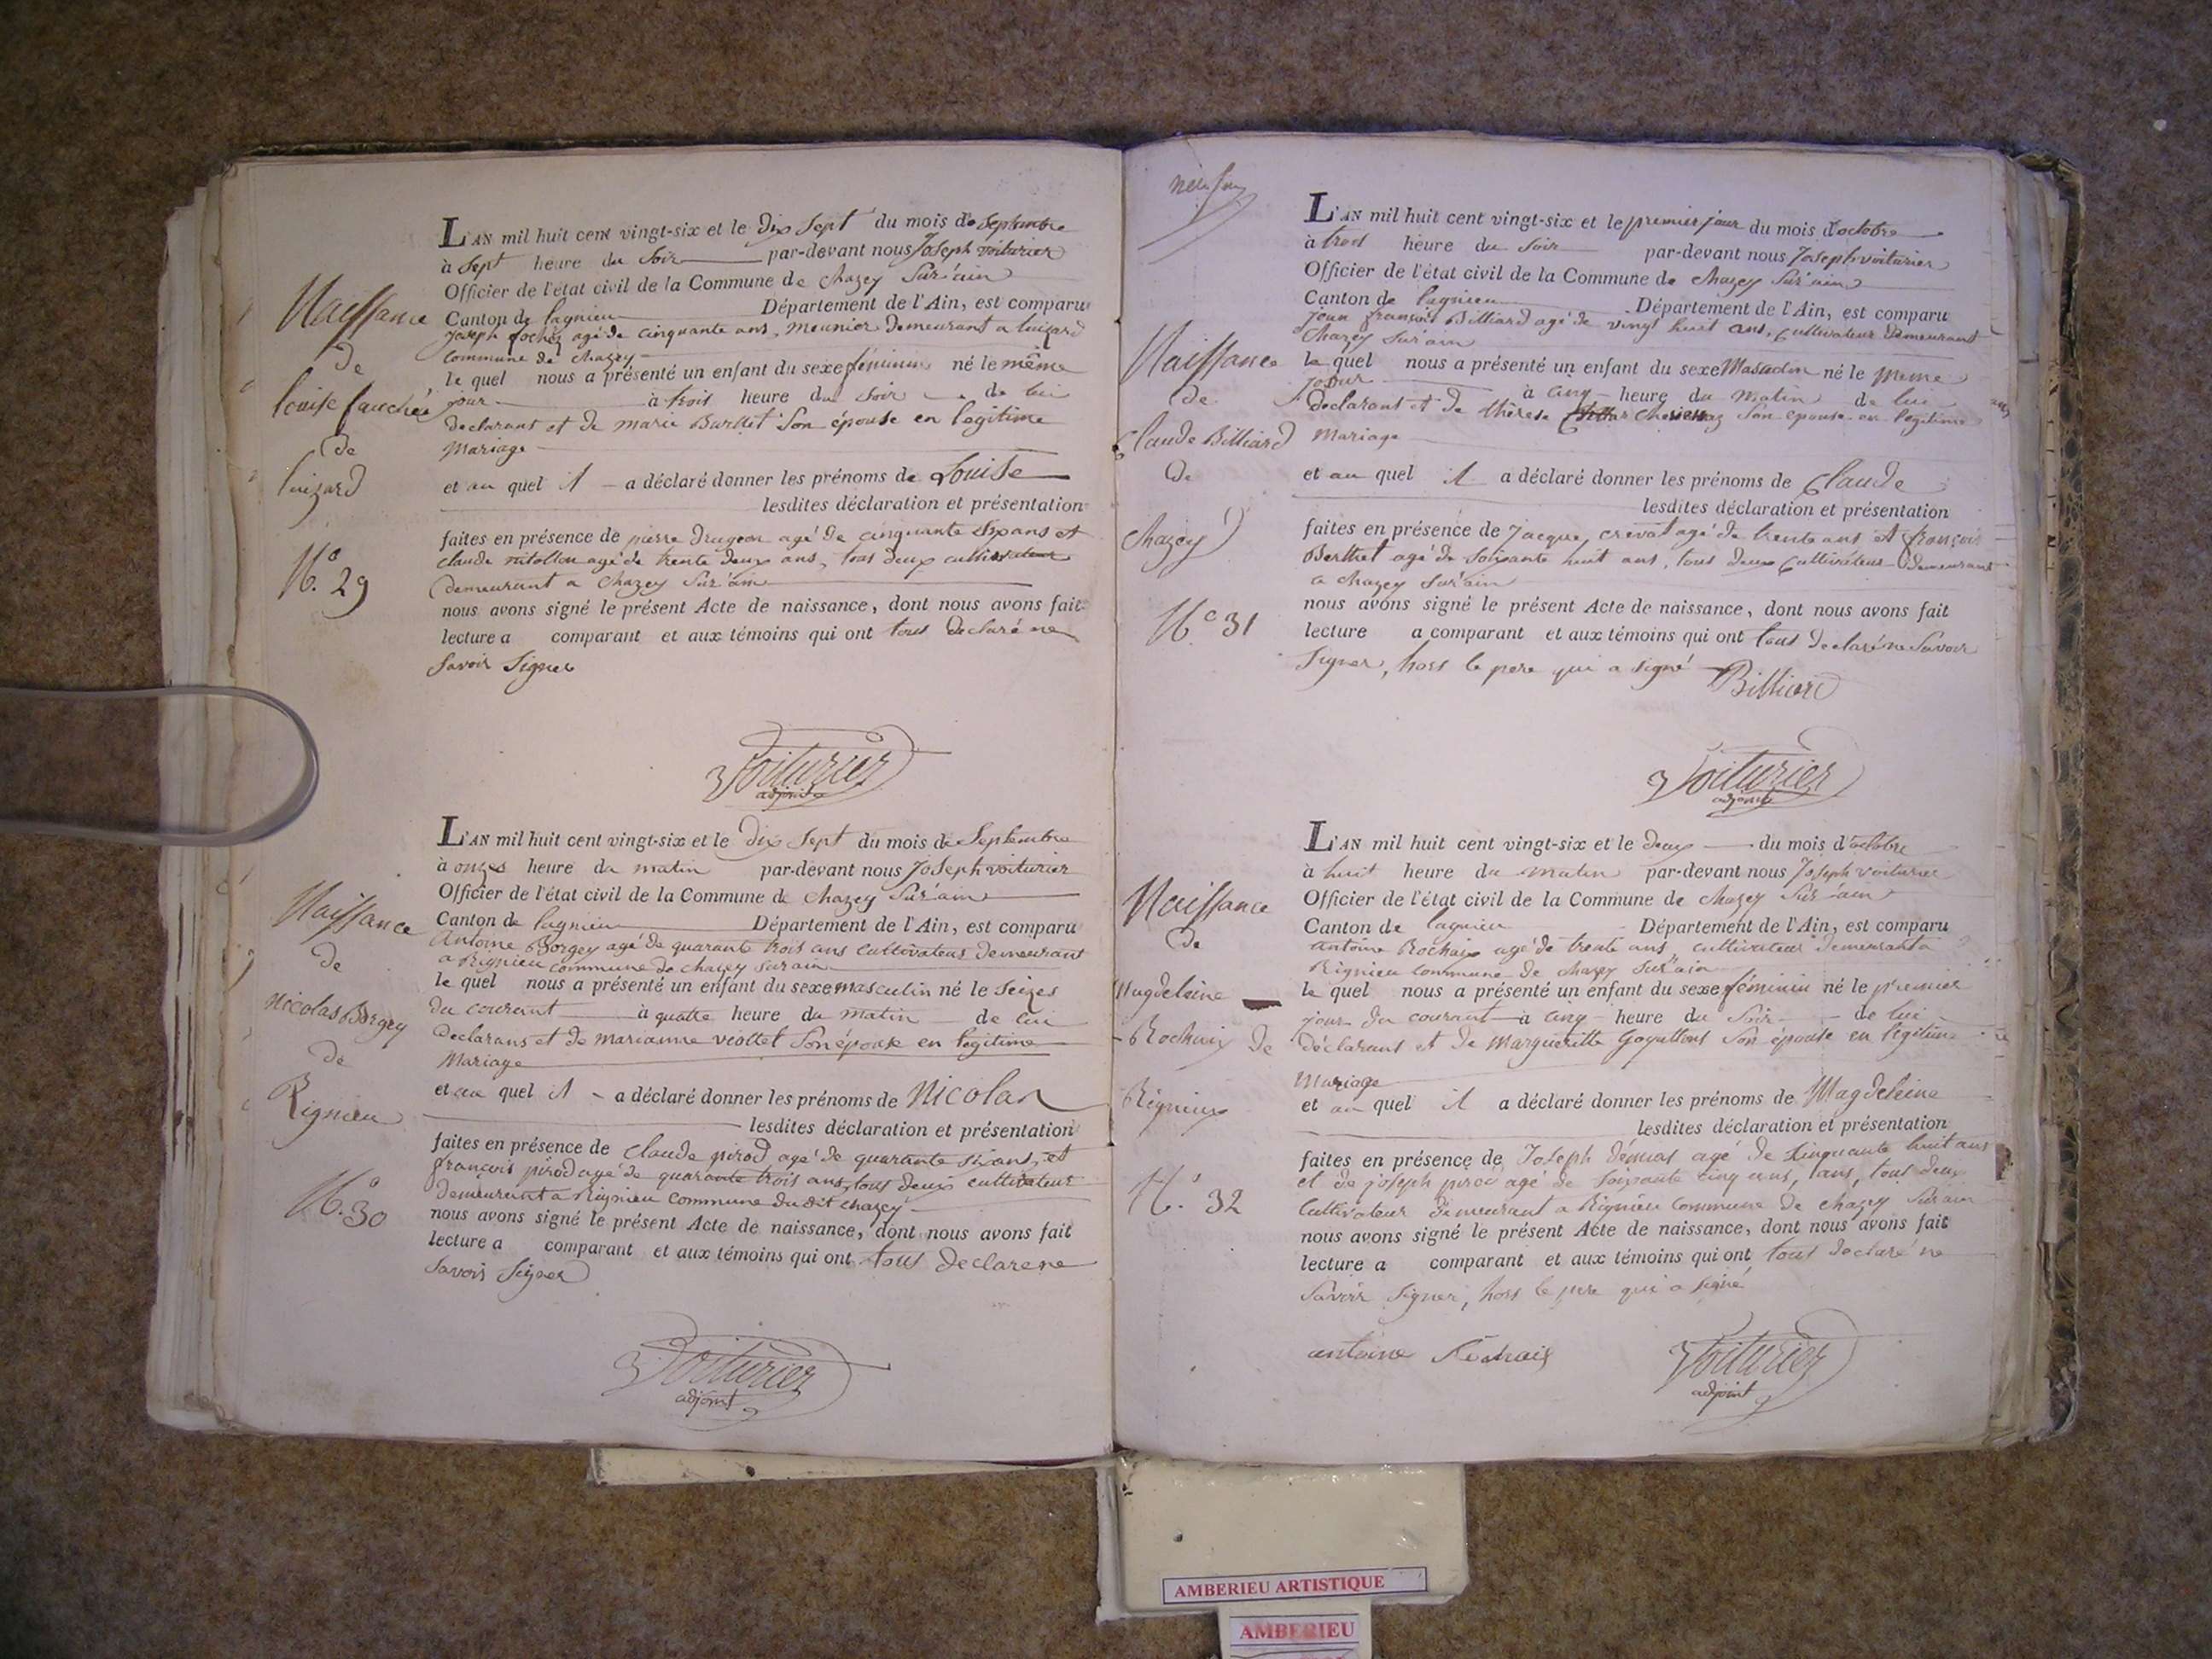 Naissance
de
louise fauchée
de
luizard
N.° 29
L'AN mil huit cent vingt-six et le dix sept du mois de septembre
à sept heure du soir par-devant nous Joseph voiturier
Officier de l'état civil de la Commune de chazey sur ain
Canton de lagnieu Département de l'Ain, est comparu
Joseph agé de cinquante ans, meunier demeurant a luizard
commune de chazey
le quel nous a présenté un enfant du sexe féminin né le même
jour à trois heure du soir de lui
declarant et de marie Burllet son épouse en legitime
mariage
et au quel il a déclaré donner les prénoms de Louise
lesdites déclaration et présentation
faites en présence de pierre drugeon agé de cinquante six ans et
claude agé de trente deux ans, tous deux cultivateur
demeurant a chazey sur ain
nous avons signé le présent Acte de naissance, dont nous avons fait
lecture a comparant et aux témoins qui ont tous declaré ne
savoir signer
Voiturier
adjoint
Naissance
de
nicolas Borgey
de
Rignieu
N.° 30
L'AN mil huit cent vingt-six et le dix sept du mois de septembre
à onzes heure du matin par-devant nous Joseph voiturier
Officier de l'état civil de la Commune de chazey sur ain
Canton de lagnieu Département de l'Ain, est comparu
Antoine Borgey agé de quarante trois ans cultivateur demeurant
a Rignieu commune de chazey sur ain
le quel nous a présenté un enfant du sexe masculin né le seizes
du courant à quatre heure du matin de lui
declarans et de marianne viollet son épouse en legitime
mariage
et au quel il a déclaré donner les prénoms de Nicolas
lesdites déclaration et présentation
faites en présence de claude pirod agé de quarante six ans, et
françois pirod agé de quarante trois ans, tous deux cultivateur
demeurant a Rignieu commune du dit chazey
nous avons signé le présent Acte de naissance, dont nous avons fait
lecture a comparant et aux témoins qui ont tous declare ne
savoir signer
Voiturier
adjoint
Naissance
de
Claude Billiard
de
chazey
N.° 31
L'AN mil huit cent vingt-six et le premier jour du mois d'octobre
à trois heure du soir par-devant nous Joseph voiturier
Officier de l'état civil de la Commune de chazey sur ain
Canton de lagnieu Département de l'Ain, est comparu
jean françois Billiard agé de vingt huit ans, cultivateur demeurant
chazey sur ain
le quel nous a présenté un enfant du sexe Masculin né le meme
jour à cinq heure du matin de lui
declarant et de thérese son epouse en legitime
mariage
et au quel il a déclaré donner les prénoms de Claude
lesdites déclaration et présentation
faites en présence de Jacque crevat agé de trente ans et françois
Berthet agé de soixante huit ans, tous deux cultivateur demeurant
a chazey sur ain
nous avons signé le présent Acte de naissance, dont nous avons fait
lecture a comparant et aux témoins qui ont tous declaré ne savoir
signer, hors le pere qui a signé Billiard
Voiturier
adjoint
Naissance
de
Magdeleine
Rochaix de
Rignieux
N.° 32
L'AN mil huit cent vingt-six et le deux du mois d'octobre
à huit heure du matin par-devant nous Joseph voiturier
Officier de l'état civil de la Commune de chazey sur ain
Canton de lagnieu Département de l'Ain, est comparu
antoine Rochaix agé de trente ans, cultivateur demeurant a
Rignieu commune de chazey sur ain
le quel nous a présenté un enfant du sexe féminin né le premier
jour du courant à cinq heure du soir de lui
déclarant et de margueritte son épouse en légitime
mariage
et au quel il a déclaré donner les prénoms de Magdeleine
lesdites déclaration et présentation
faites en présence de Joseph agé de sinquante huit ans
et de joseph pirod agé de soixante cinq ans, ans, tous deux
cultivateur demeurant a Rignieu commune de chazey sur ain
nous avons signé le présent Acte de naissance, dont nous avons fait
lecture a comparant et aux témoins qui ont tous declaré ne
savoir signer, hors le pere qui a signé
antoine Rochaix
Voiturier
adjoint
AMBERIEU ARTISTIQUE
AMBERIEU